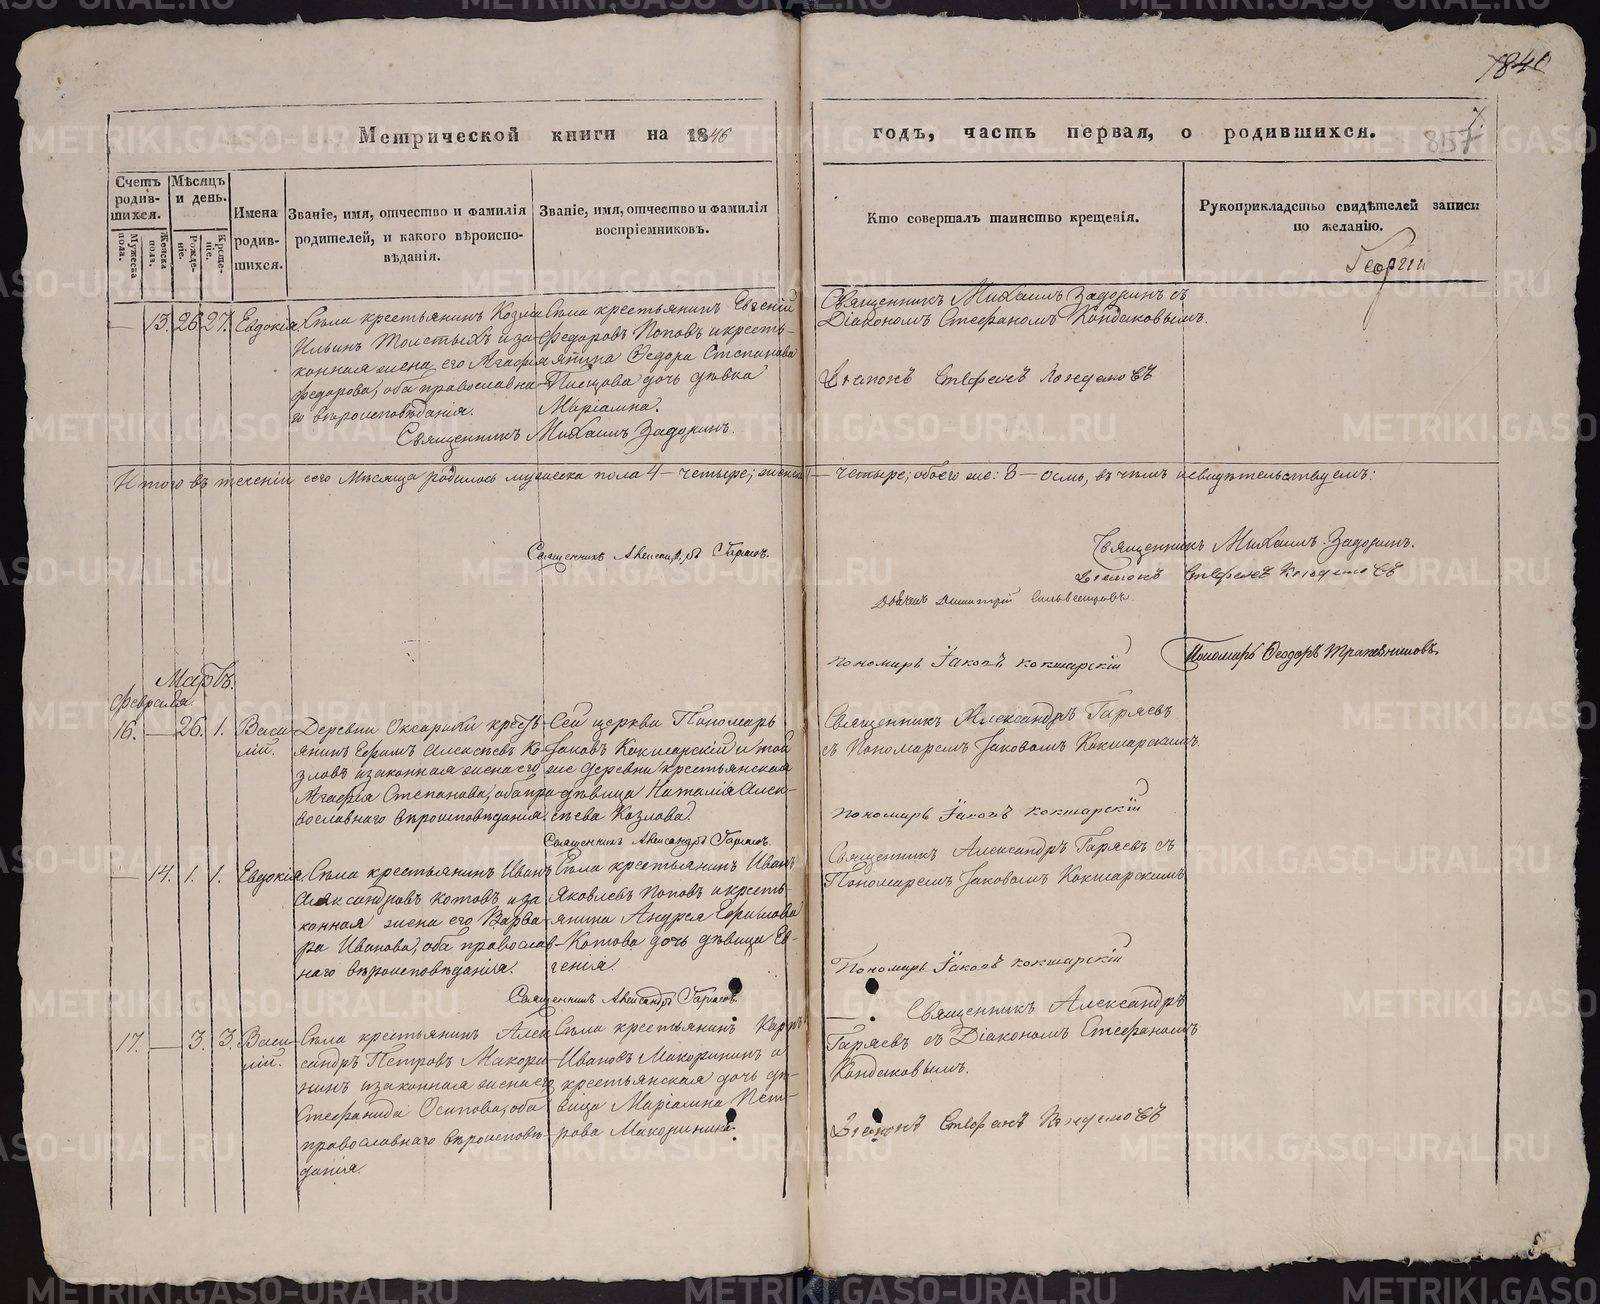 1840
7.
857
Метрической книги на 1846
годъ, часть первая, о родившихся.
Счетъ родив-шихся.
Мужеска пола.
Женска пола.
Мѣсяцъ и день.
Рожде-ніе.
Креще-ніе.
Имена родив-шихся.
Званіе, имя, отчество и фамилія родителей, и какого вѣроиспо-вѣданія.
Званіе, имя, отчество и фамилія воспріемниковъ.
Кто совершалъ таинство крещенія.
Рукоприкладство свидѣтелей записи по желанію.
Георгій
— 13. 26 27. Евдокія
Села крестьянинъ Козма
Ильинъ Толстыхъ и за-
конная жена его Агафія
Федорова, оба православна-
го вѣроисповѣданія.
Села крестьянинъ Евгеній
Федоровъ Поповъ и кресть-
янина Федора Степанова
дочь дѣвка
Маріамна.
Священникъ Михаилъ Задоринъ.
Священникъ Михаилъ Задоринъ съ
Діакономъ Стефаномъ Кондаковымъ.
Діаконъ Стефанъ Кондаковъ
Итого въ теченіи сего Мѣсяца родилось мужеска пола 4 — четыре; женска 4 — четыре; обоего же: 8 — осмь, въ чемъ и свидѣтельствуемъ:
Священникъ Александръ Гаряевъ.
Священникъ Михаилъ Задоринъ.
Діаконъ Стефанъ Кондаковъ
Дьячекъ Димитрій Сильвестровъ
Пономарь Іаковъ Кокшарскій
Пономарь Ѳеодоръ
Мартъ.
Февраля.
16. — 26. 1. Васи-
лій.
Деревни Оксарихи кресть-
янинъ Ефимъ Алексѣевъ Ко-
зловъ и законная жена его
Агафія Степанова, оба пра-
вославнаго вѣроисповѣданія.
Сей церкви Пономарь
Іаковъ Кокшарскій и той
же деревни крестьянская
дѣвица Наталія Алек-
сѣева Козлова.
Священникъ Александръ Гаряевъ.
Священникъ Александръ Гаряевъ
съ Пономаремъ Іаковомъ Кокшарскимъ.
Пономарь Іаковъ Кокшарскій
— 14. 1. 1. Евдокія.
Села крестьянинъ Иванъ
Александровъ Котовъ и за-
конная жена его Варва-
ра Иванова, оба православ-
наго вѣроисповѣданія.
Села крестьянинъ Иванъ
Яковлевъ Поповъ и кресть-
янина Андрея Ефимова
Котова дочь дѣвица Ев-
генія.
Священникъ Александръ Гаряевъ
Священникъ Александръ Гаряевъ съ
Пономаремъ Іаковомъ Кокшарскимъ
Пономарь Іаковъ Кокшарскій
17. — 3. 3. Васи-
лій.
Села крестьянинъ Алек-
сандръ Петровъ Макори-
нинъ и законная жена его
Стефанида Осипова, оба
православнаго вѣроисповѣ-
данія.
Села крестьянинъ Карпъ
Ивановъ Макорининъ и
крестьянская дочь дѣ-
вица Маріамна Пет-
рова Макоринина.
Священникъ Александръ
Гаряевъ съ Діакономъ Стефаномъ
Кондаковымъ.
Діаконъ Стефанъ Кондаковъ
METRIKI.GASO-URAL.RU